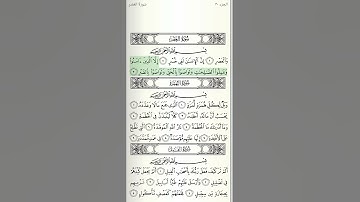 الجزء ٣٠
سورة العصر
سُورَةُ العَصْرِ
بِسْمِ ٱللَّهِ ٱلرَّحْمَٰنِ ٱلرَّحِيمِ
وَٱلْعَصْرِ ١ إِنَّ ٱلْإِنسَٰنَ لَفِي خُسْرٍ ٢ إِلَّا ٱلَّذِينَ ءَامَنُوا۟
وَعَمِلُوا۟ ٱلصَّٰلِحَٰتِ وَتَوَاصَوْا۟ بِٱلْحَقِّ وَتَوَاصَوْا۟ بِٱلصَّبْرِ ٣
سُورَةُ الهُمَزَةِ
بِسْمِ ٱللَّهِ ٱلرَّحْمَٰنِ ٱلرَّحِيمِ
وَيْلٌ لِّكُلِّ هُمَزَةٍ لُّمَزَةٍ ١ ٱلَّذِي جَمَعَ مَالًا وَعَدَّدَهُۥ ٢
يَحْسَبُ أَنَّ مَالَهُۥٓ أَخْلَدَهُۥ ٣ كَلَّا لَيُنۢبَذَنَّ فِي ٱلْحُطَمَةِ ٤
وَمَآ أَدْرَىٰكَ مَا ٱلْحُطَمَةُ ٥ نَارُ ٱللَّهِ ٱلْمُوقَدَةُ ٦ ٱلَّتِي تَطَّلِعُ
عَلَى ٱلْأَفْـِٔدَةِ ٧ إِنَّهَا عَلَيْهِم مُّؤْصَدَةٌ ٨ فِي عَمَدٍ مُّمَدَّدَةٍۭ ٩
سُورَةُ الفِيلِ
بِسْمِ ٱللَّهِ ٱلرَّحْمَٰنِ ٱلرَّحِيمِ
أَلَمْ تَرَ كَيْفَ فَعَلَ رَبُّكَ بِأَصْحَٰبِ ٱلْفِيلِ ١ أَلَمْ يَجْعَلْ كَيْدَهُمْ
فِي تَضْلِيلٍ ٢ وَأَرْسَلَ عَلَيْهِمْ طَيْرًا أَبَابِيلَ ٣ تَرْمِيهِم
بِحِجَارَةٍ مِّن سِجِّيلٍ ٤ فَجَعَلَهُمْ كَعَصْفٍ مَّأْكُولٍۭ ٥